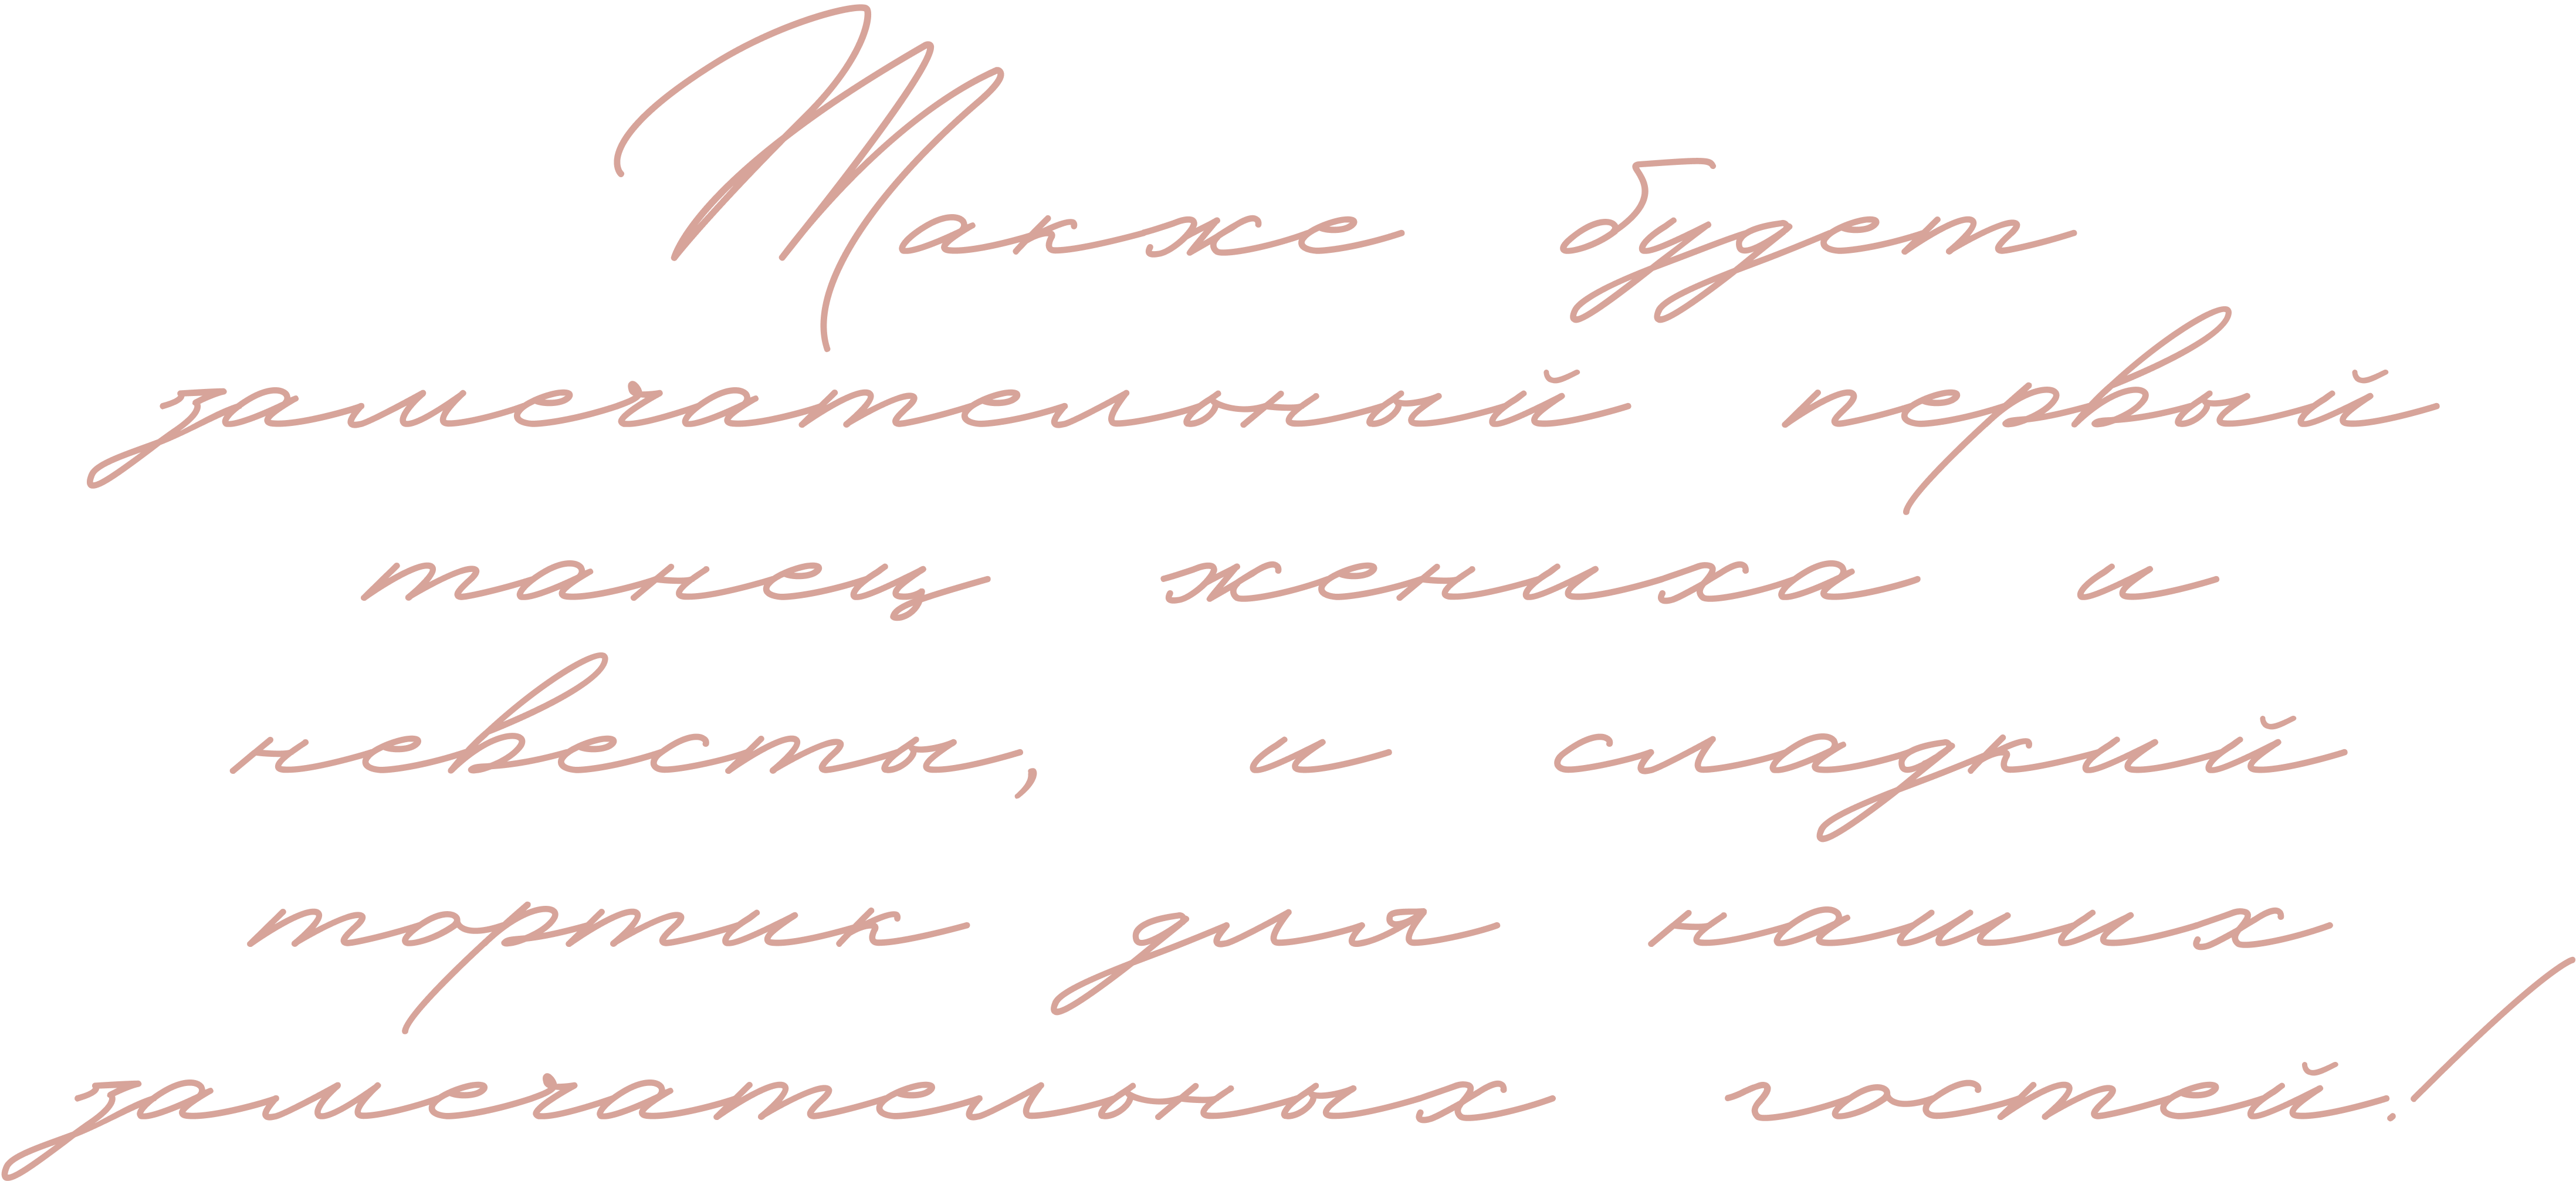 Также будет
замечательный первый
танец жениха и
невесты, и сладкий
тортик для наших
замечательных гостей!